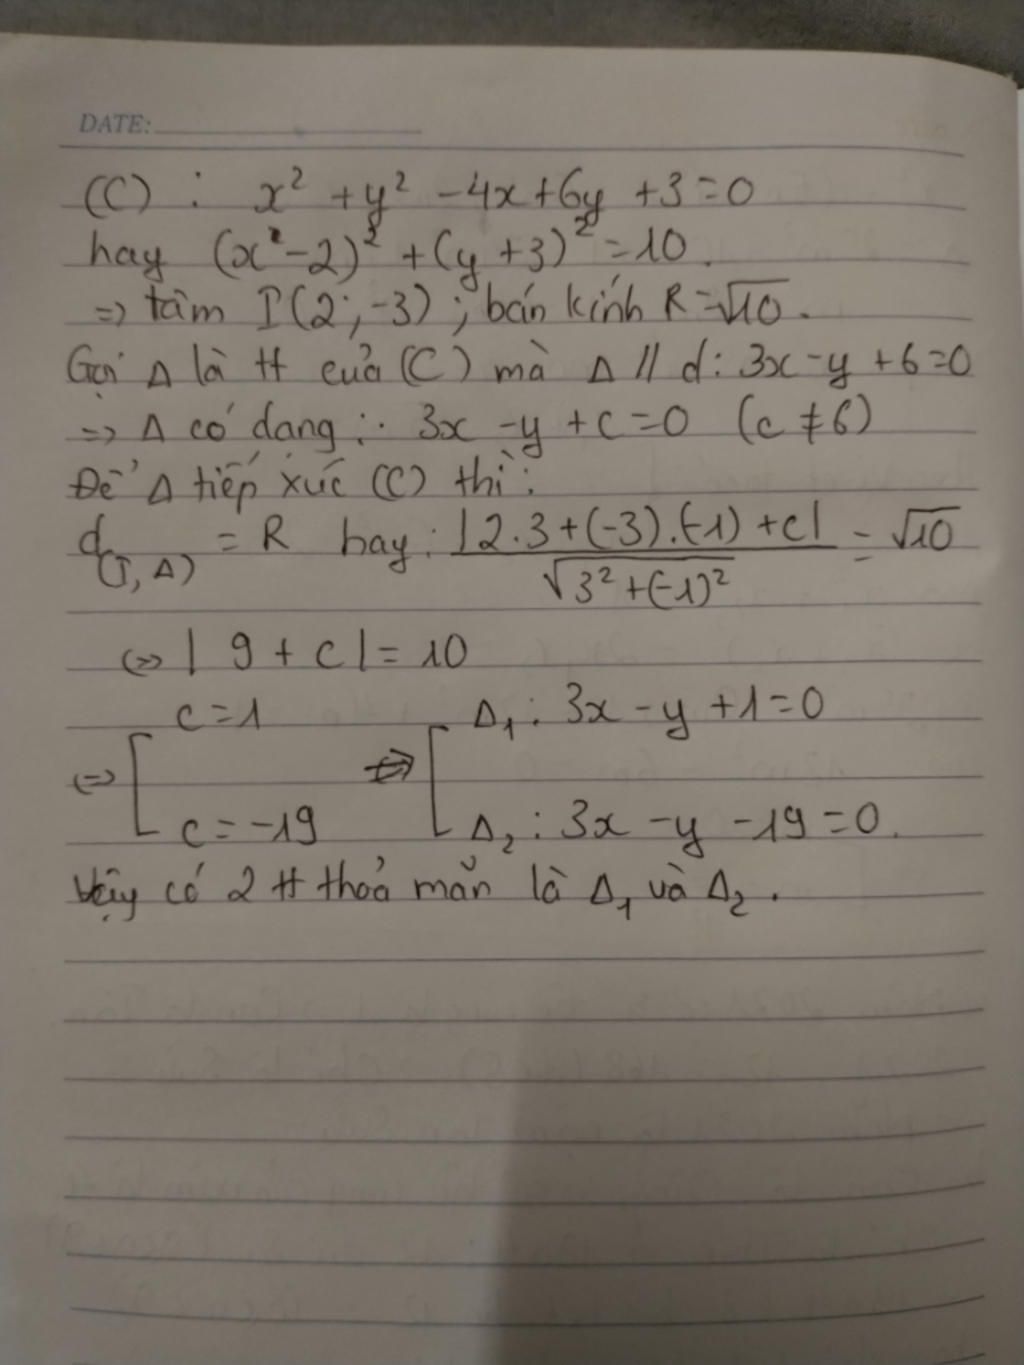 DATE:
(C) : x² + y² - 4x + 6y + 3 = 0
hay (x - 2)² + (y + 3)² = 10.
=> tâm I(2; -3) ; bán kính R = √10.
Gọi Δ là tt của (C) mà Δ // d: 3x - y + 6 = 0
=> Δ có dạng : 3x - y + c = 0 (c ≠ 6)
Để Δ tiếp xúc (C) thì:
d(I, Δ) = R hay: |2.3 + (-3).(-1) + c| / √(3² + (-1)²) = √10
<=> | 9 + c | = 10
<=> [ c = 1 <=> [ Δ₁ : 3x - y + 1 = 0
c = -19 Δ₂ : 3x - y - 19 = 0.
Vậy có 2 tt thoả mãn là Δ₁ và Δ₂ .